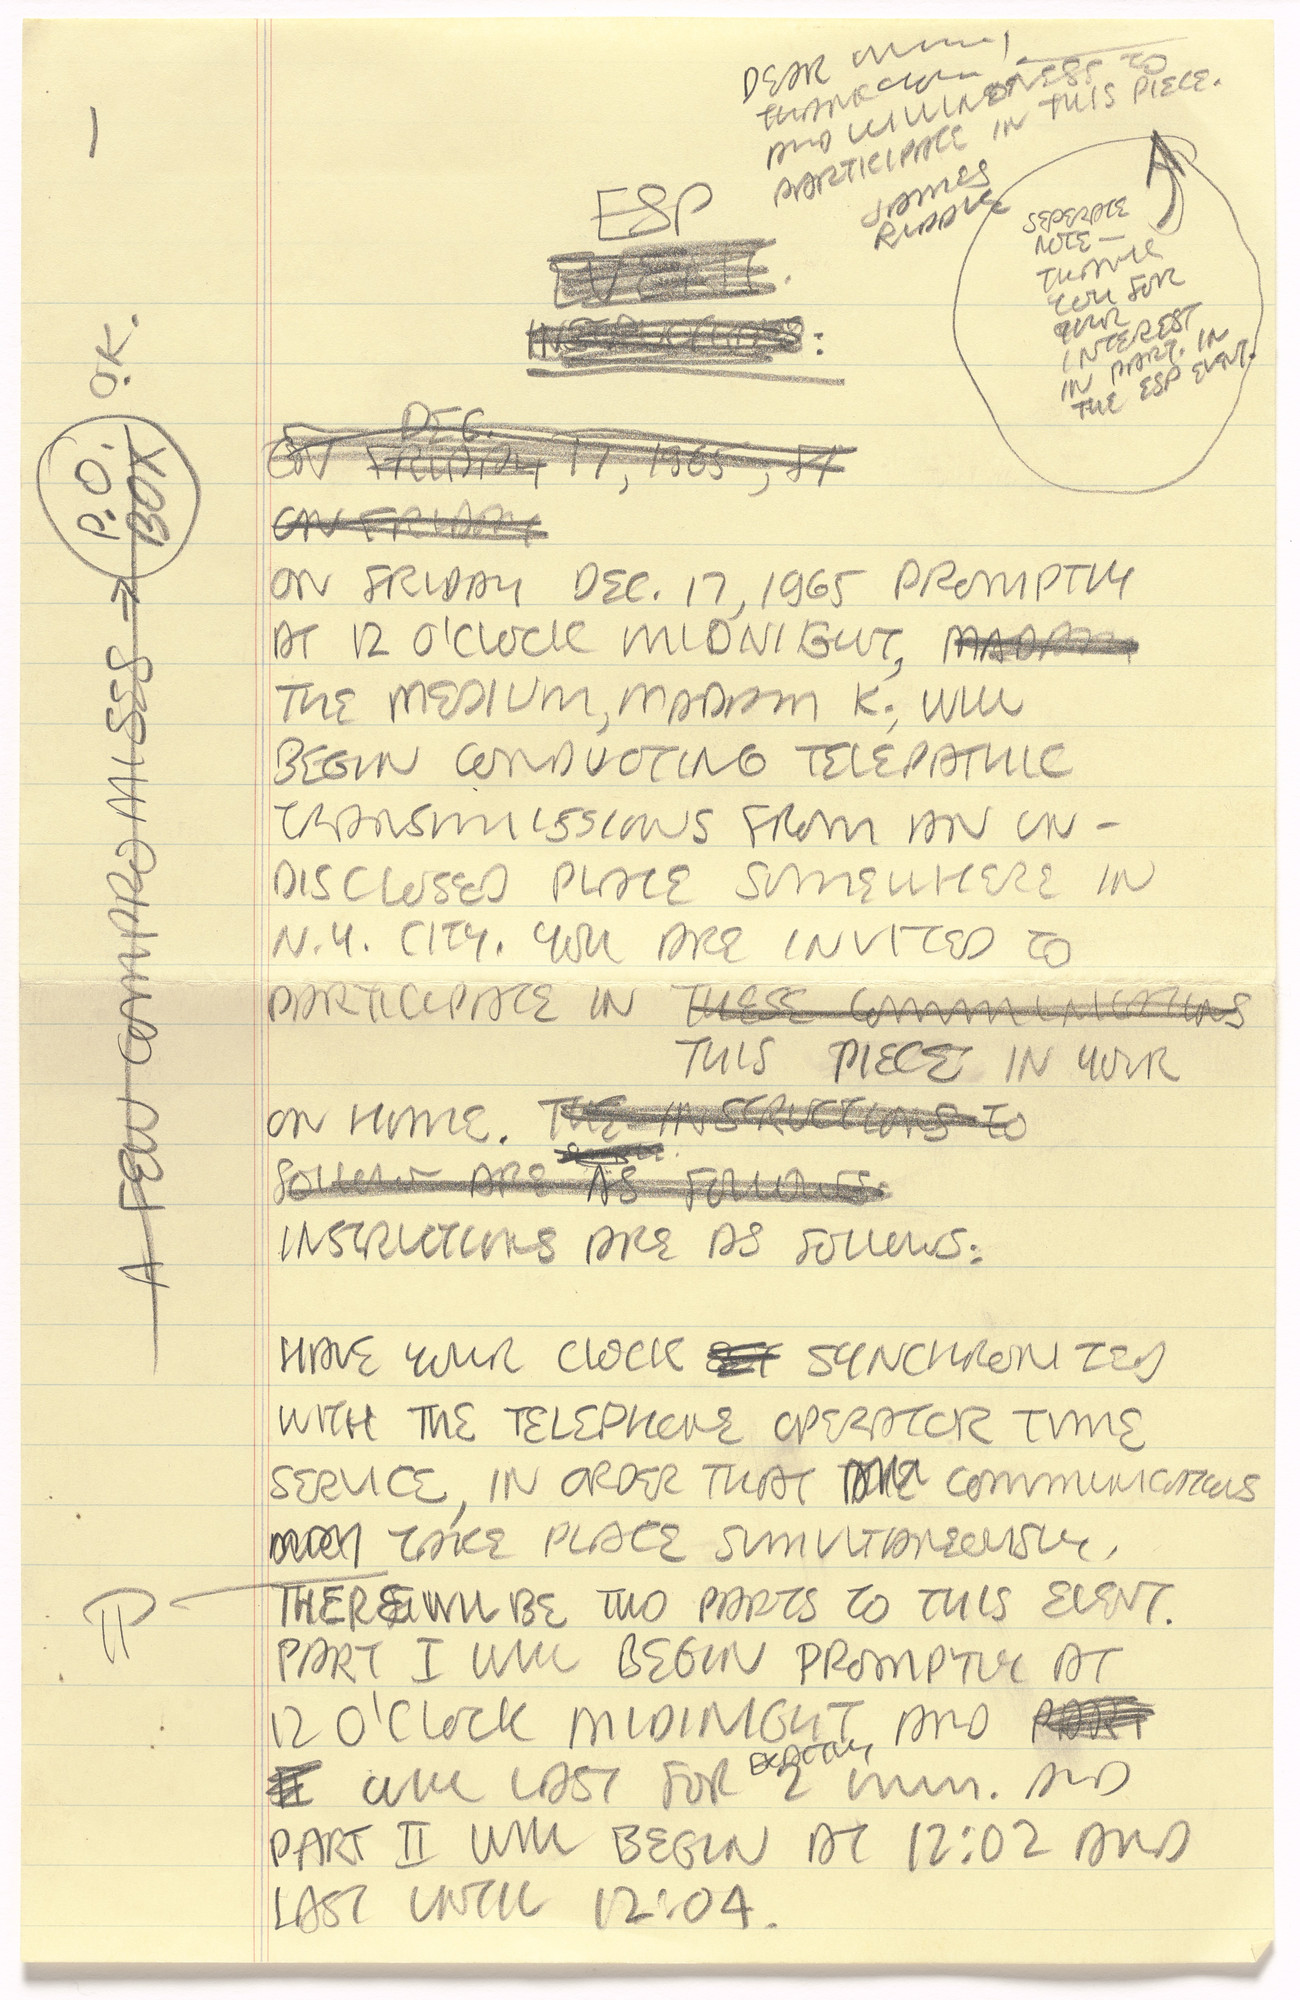 1
DEAR
THANK
AND WILLINGNESS TO
PARTICIPATE IN THIS PIECE.
JAMES
RIDDLE
SEPERATE
NOTE —
THANK
YOU FOR
YOUR
INTEREST
IN PART. IN
THE ESP EVENT.
ESP
EVENT.
INSTRUCTIONS:
O.K.
P.O.
BOX
A FEW COMPROMISES →
DEC.
ON FRIDAY 17, 1965, AT
ON FRIDAY
ON FRIDAY DEC. 17, 1965 PROMPTLY
AT 12 O'CLOCK MIDNIGHT, MADAM
THE MEDIUM, MADAM K., WILL
BEGIN CONDUCTING TELEPATHIC
TRANSMISSIONS FROM AN UN-
DISCLOSED PLACE SOMEWHERE IN
N.Y. CITY. YOU ARE INVITED TO
PARTICIPATE IN THESE COMMUNICATIONS
THIS PIECE IN YOUR
ON HOME. THE INSTRUCTIONS TO
FOLLOW ARE AS FOLLOWS:
INSTRUCTIONS ARE AS FOLLOWS:
HAVE YOUR CLOCK SET SYNCHRONIZED
WITH THE TELEPHONE OPERATOR TIME
SERVICE, IN ORDER THAT THE COMMUNICATIONS
MAY TAKE PLACE SIMULTANEOUSLY.
II
THERE WILL BE TWO PARTS TO THIS EVENT.
PART I WILL BEGIN PROMPTLY AT
12 O'CLOCK MIDINIGHT AND PART
II WILL LAST FOR EXACTLY 2 MIN. AND
PART II WILL BEGIN AT 12:02 AND
LAST UNTIL 12:04.